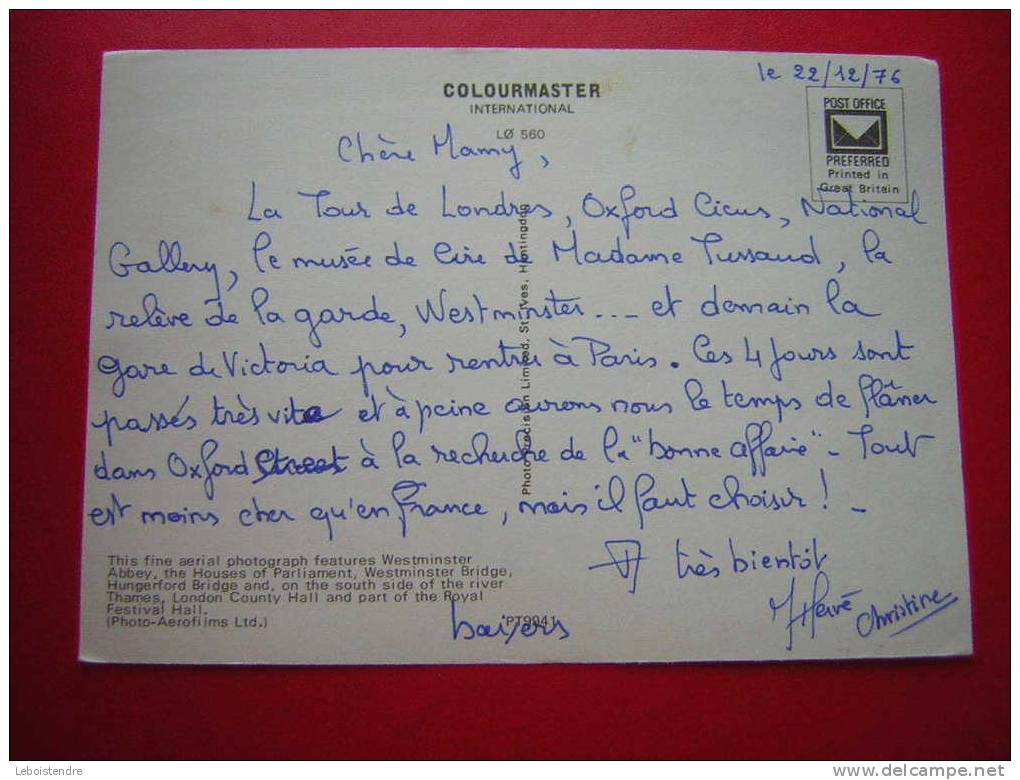 le 22/12/76
COLOURMASTER
INTERNATIONAL
LØ 560
POST OFFICE
PREFERRED
Printed in
Great Britain
Chère Mamy,
La Tour de Londres, Oxford Cicus, National
Gallery, le musée de Cire de Madame Tussaud, la
relève de la garde, Westminster... et demain la
gare de Victoria pour rentrer à Paris. Ces 4 jours sont
passés très vite et à peine aurons nous le temps de flâner
dans Oxford Street à la recherche de la "bonne affaire" - Tout
est moins cher qu'en france, mais il faut choisir ! -
A très bientôt
Hervé
Christine
baisers
Photo Precision Limited, St. Ives, Huntingdon
This fine aerial photograph features Westminster
Abbey, the Houses of Parliament, Westminster Bridge,
Hungerford Bridge and, on the south side of the river
Thames, London County Hall and part of the Royal
Festival Hall.
(Photo-Aerofilms Ltd.)
PT9941
Leboistendre
www.delcampe.net